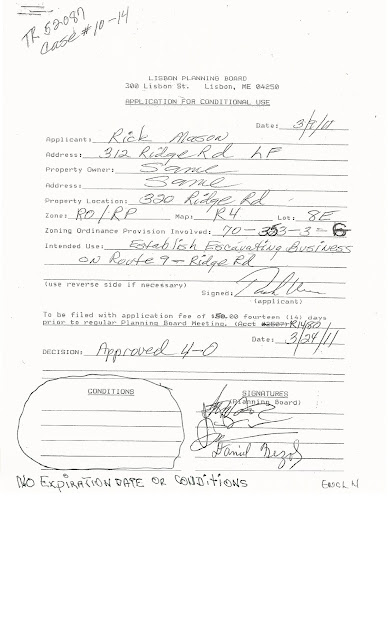 TR 52-087
Case #10-14
LISBON PLANNING BOARD
300 Lisbon St. Lisbon, ME 04250
APPLICATION FOR CONDITIONAL USE
Date: 3/9/11
Applicant: Rick Mason
Address: 312 Ridge Rd LF
Property Owner: Same
Address: Same
Property Location: 320 Ridge Rd
Zone: RO/RP Map: R4 Lot: 8E
Zoning Ordinance Provision Involved: 70-353-3-6
Intended Use: Establish Escavating Business
on Route 9 - Ridge Rd
(use reverse side if necessary)
Signed:
(applicant)
To be filed with application fee of .00 fourteen (14) days
prior to regular Planning Board Meeting. (Acct R1480)
Date: 3/24/11
DECISION: Approved 4-0
CONDITIONS
SIGNATURES
(Planning Board)
Daniel
NO EXPIRATION DATE OR CONDITIONS
ENCL